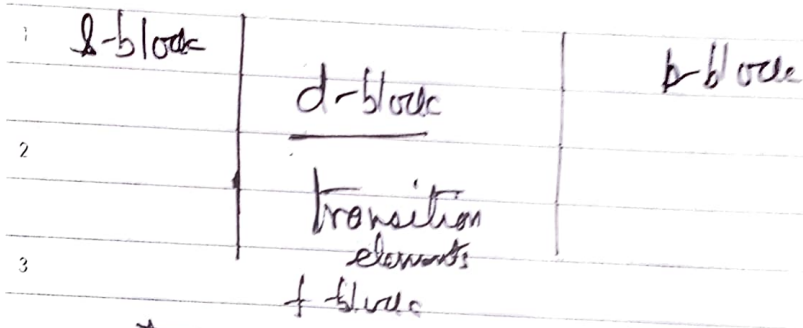 1 s-block
p-block
d-block
2
transition
elements
3
f block